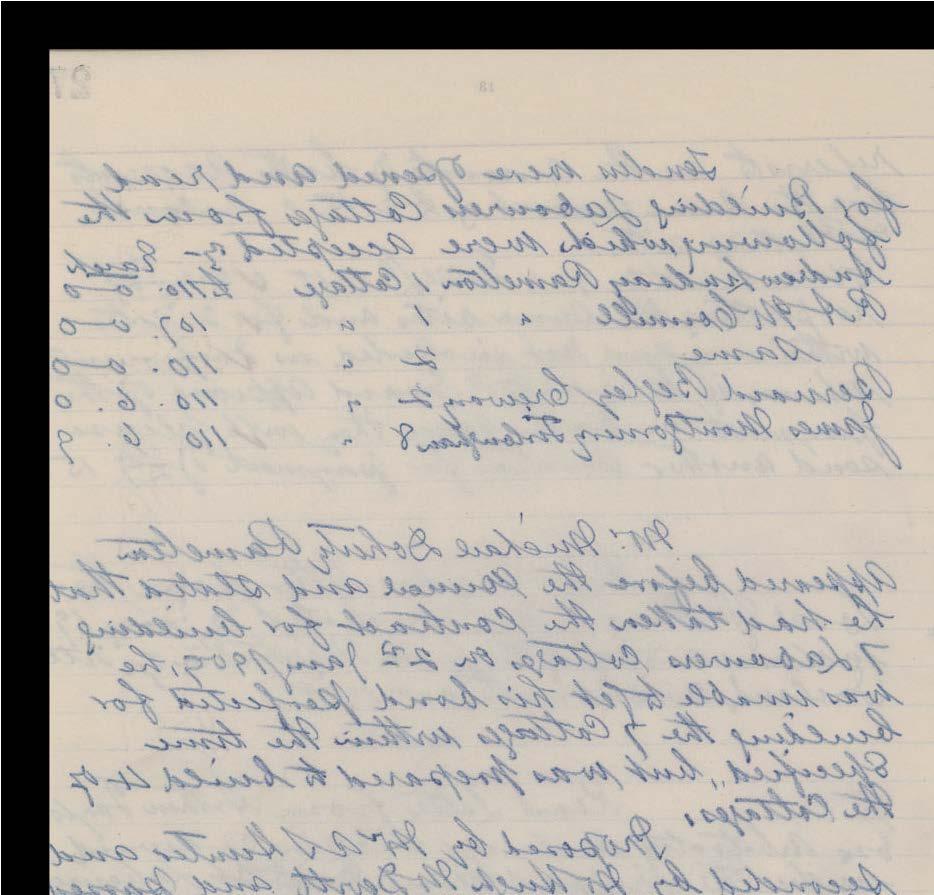 27
13
Tenders were opened and read
for Building Labourers Cottages from the
following which were accepted :- Each
Andrew Lindsay Ramelton 1 Cottage £110. 0 0
R A McConnell " 1 " 107. 0 0
Same 2 " 110. 0 0
Bernard Begley Creevary 2 " 110. 6. 0
James Montgomery 8 " 110. 6. 9
Mr. Michael Doherty Ramelton
appeared before the Council and stated that
he had taken the Contract for building
7 Labourers Cottages on 2nd Jany 1909, he
was unable to get his bond perfected for
building the 7 Cottages within the time
specified, but was prepared to build 4 of
the Cottages.
Proposed by Mr A S Hunter and
seconded by Mr Hugh McDevitt and